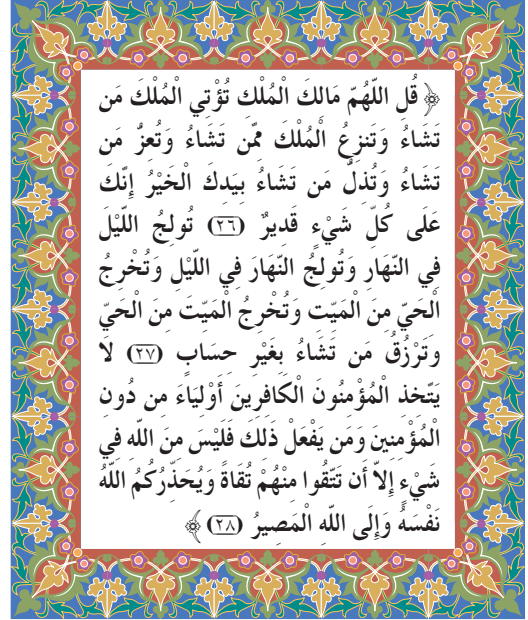 ﴿ قُلِ اللّهُمّ مَالكَ الْمُلْك تُؤْتِي الْمُلْكَ مَن
تَشاءُ وَتنزِعُ الْمُلْكَ ممّن تَشَاءُ وَتُعزُّ مَن
تشَاءُ وَتُذلُّ مَن تَشاءُ بيَدكَ الْخَيْرُ إنّك
عَلَى كُلّ شَيْءٍ قَديرٌ (٢٦) تُولجُ اللّيْلَ
في النّهَار وَتُولجُ النّهَارَ في اللّيْل وَتُخْرجُ
الْحَيّ منَ الْمَيّت وَتُخْرجُ الْمَيّتَ مِنَ الْحَيّ
وتَرْزُقُ مَن تَشاءُ بغَيْر حسَابٍ (٢٧) لا
يَتّخذ الْمُؤْمنُونَ الْكَافرِينَ أَوْليَاءَ من دُون
الْمُؤْمنينَ وَمَن يَفْعَلْ ذَلكَ فَلَيْسَ منَ اللّه في
شَيْءٍ إلاّ أَن تَتّقُوا منْهُمْ تُقَاةً وَيُحَذّرُكُمُ اللّهُ
نَفْسَهُ وَإلَى اللّه الْمَصيرُ (٢٨) ﴾